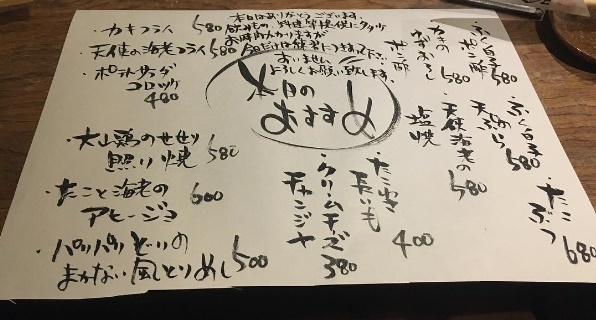 本日はありがとうございます。
飲みもの、料理等提供にタタツ
お時間かかりますが
今日だけは
すいません
よろしくお願い致します。
本日の
おすすめ
・カキフライ 580
・天使の海老フライ 580
・ポテトサラダ
コロッケ
480
・大山鶏のせせり
照り焼 580
・たこと海老の
アヒージョ 600
・パリパリどりの
まかない風とりめし 500
・ふぐ白子
ポン酢 580
・カキの
ゆずおろし
ポン酢 580
・ふぐ白子
天ぷら 580
・天使海老の
塩焼 580
・たこ
ぶつ 680
・たこわさ
400
・クリームチーズ
チャンジャ
380